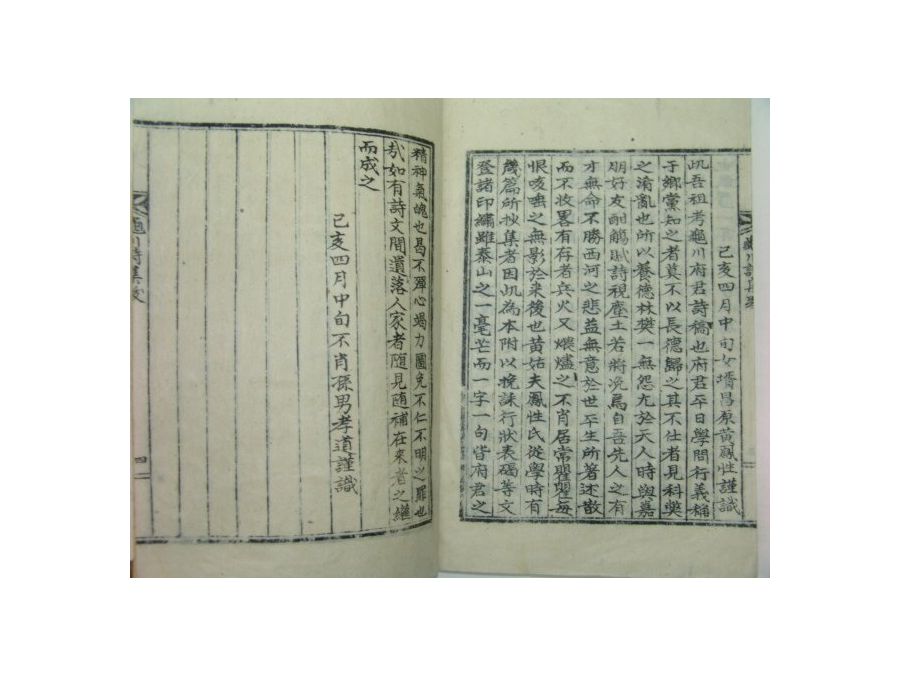 己亥四月中旬女壻昌原黄鳳性謹識
此吾祖考龜川府君詩稿也府君平日學問行義稱
于鄉黨知之者莫不以長德歸之其不仕者見科獘
之淆亂也所以養德林樊一無怨尤於天人時與嘉
朋好友酣觴賦詩視塵土若將浼焉自吾先人之有
才無命不勝西河之悲益無意於世平生所著述散
而不收畧有存者兵火又煨燼之不肖居常瞿瞿每
恨咳唾之無影於来後也黄姑夫鳳性氏從學時有
幾篇所抄集者因此為本附以挽誄行狀表碣等文
登諸印繡雖泰山之一毫芒而一字一句皆府君之
精神氣魄也曷不殫心竭力圖免不仁不明之罪也
㢤如有詩文間遺落人家者随見随補在来者之繼
而成之
己亥四月中旬不肖孫男孝道謹識
龜川詩集跋
四